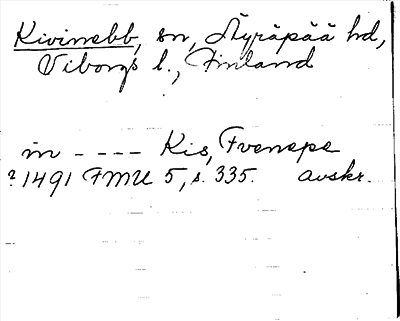 Kivinebb, sn, Äyräpää hd,
Viborgs l., Finland
in - - - - Kis, Fvenepe
? 1491 FMU 5, s. 335. avskr.